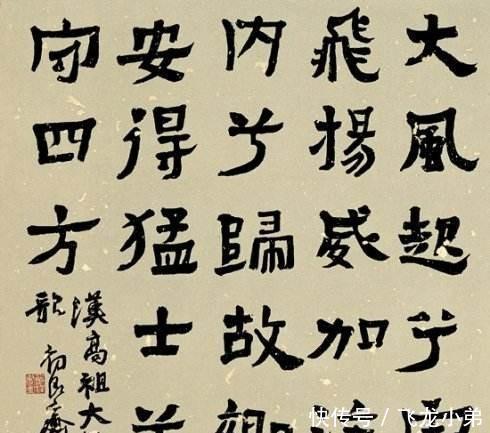 大風起兮
飛揚威加
内兮歸故鄉
安得猛士兮
守四方
漢高祖大
歌
快传号 / 飞龙小弟